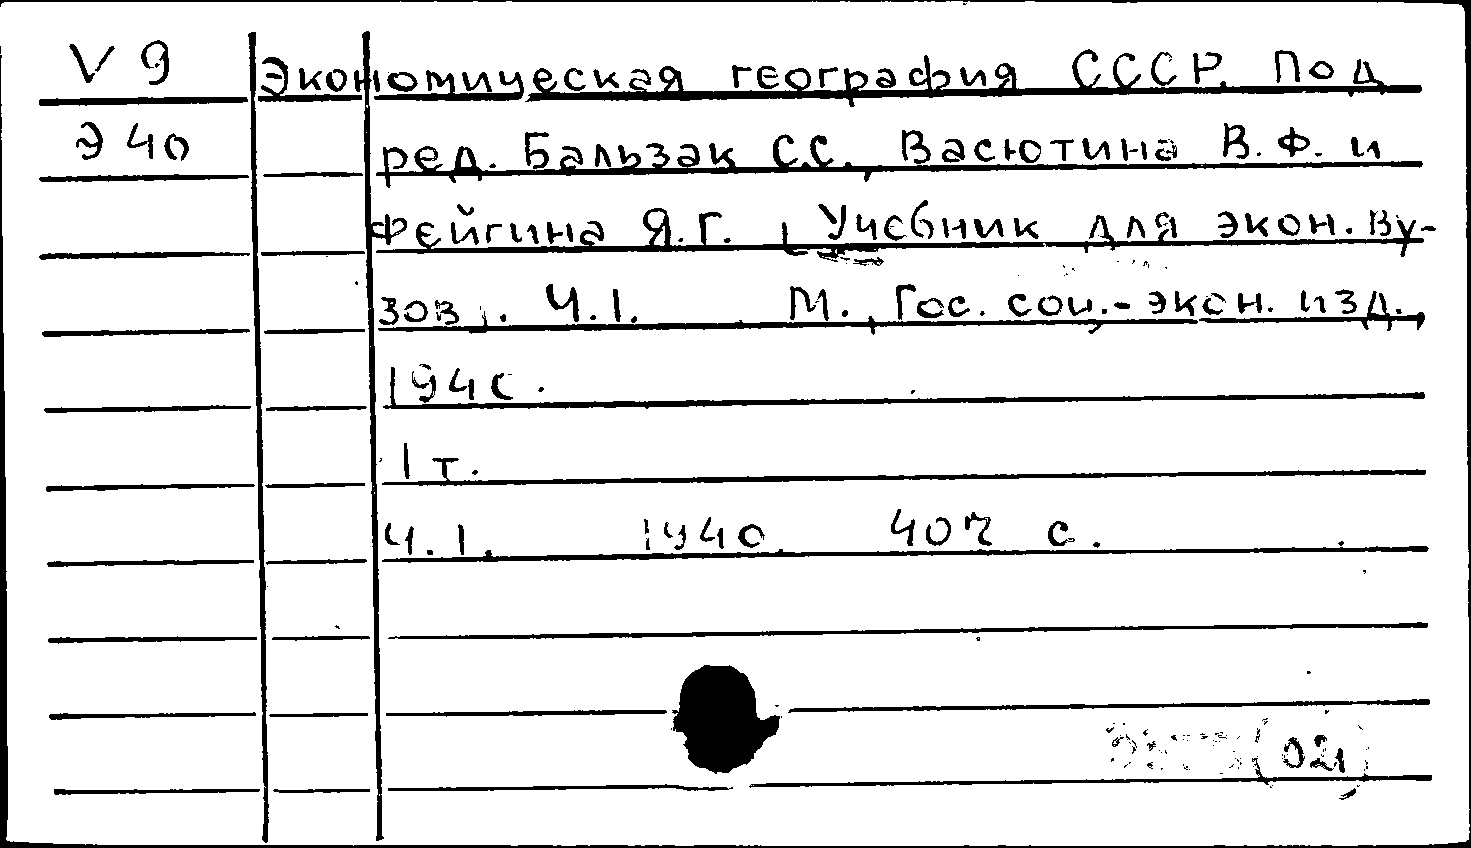 V 9 Экономическая география СССР. Под
Э 40 ред. Бальзак С.С., Васютина В.Ф. и
Фейгина Я.Г. (Учебник для экон. ву-
зов). Ч.1. М., Гос. соц.-экон. изд.,
1940.
1 т.
Ч.1. 1940. 407 с.
(02)